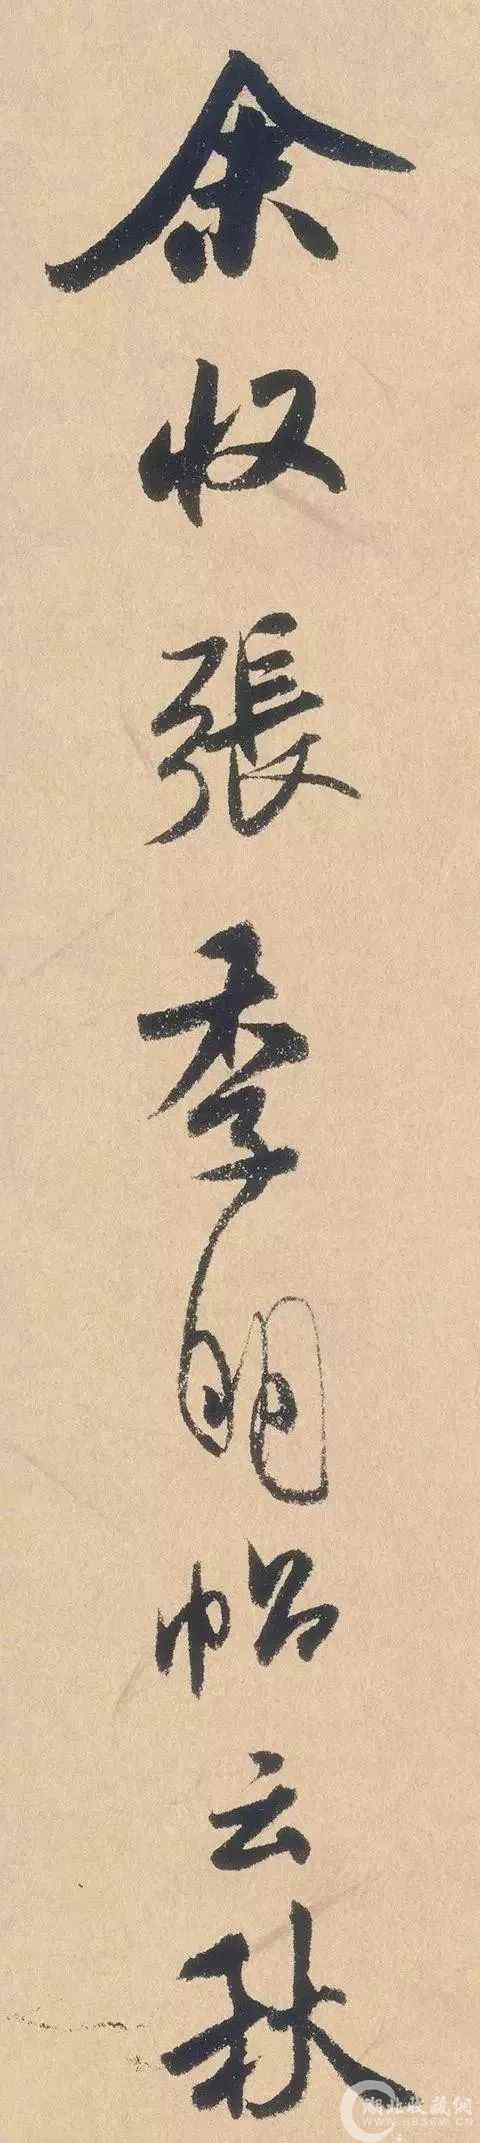 余收張季明帖云秋
湖北收藏網
WWW.HBSCW.CN